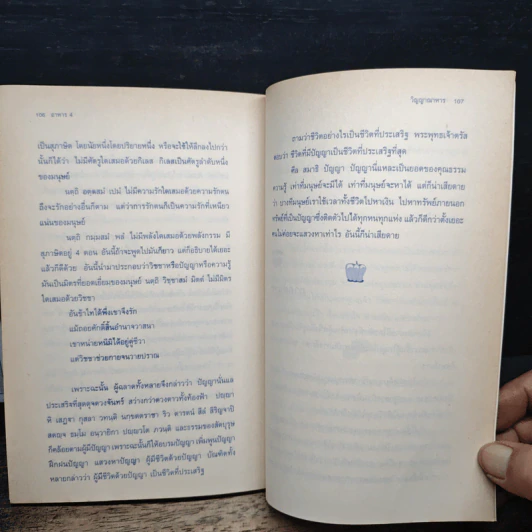 ๑๐๖ อาหาร 4
เป็นสุภาษิต โดยนัยหนึ่งโดยปริยายหนึ่ง หรือจะใช้ให้ลึกลงไปกว่า
นั้นก็ได้ว่า ไม่มีศัตรูใดเสมอด้วยกิเลส กิเลสเป็นศัตรูลำดับหนึ่ง
ของมนุษย์
นตฺถิ อตฺตสมํ เปมํ ไม่มีความรักใดเสมอด้วยความรักตน
ถึงจะรักอย่างอื่นก็ตาม แต่ว่าการรักตนก็เป็นความรักที่เหนียว
แน่นของมนุษย์
นตฺถิ กมฺมสมํ พลํ ไม่มีพลังใดเสมอด้วยพลังกรรม มี
สุภาษิตอยู่ 4 ตอน อันนี้ถ้าจะพูดไปมันก็ยาว แต่ก็อธิบายได้เยอะ
แล้วก็ดีด้วย อันนี้นำมาประกอบว่าวิชชาหรือปัญญาหรือความรู้
มันเป็นมิตรที่ยอดเยี่ยมของมนุษย์ นตฺถิ วิชฺชาสมํ มิตฺตํ ไม่มีมิตร
ใดเสมอด้วยวิชชา
อันข้าไทได้พึ่งเขาจึงรัก
แม้ถอยศักดิ์สิ้นอำนาจวาสนา
เขาหน่ายหนีมิได้อยู่คู่ชีวา
แต่วิชชาช่วยกายจนวายปราณ
เพราะฉะนั้น ผู้ฉลาดทั้งหลายจึงกล่าวว่า ปัญญานั่นแล
ประเสริฐที่สุดดุจดวงจันทร์ สว่างกว่าดวงดาวทั้งท้องฟ้า ปญฺญา
หิ เสฏฺฐา กุสลา วทนฺติ นกฺขตฺตราชา ริว ตารกานํ สีลํ สิรีญฺจาปิ
สตญฺจ ธมฺโม อนฺวายิกา ปญฺญวโต ภวนฺติ และธรรมของสัตบุรุษ
ก็คล้อยตามผู้มีปัญญา เพราะฉะนั้นก็ให้อบรมปัญญา เพิ่มพูนปัญญา
ฝึกฝนปัญญา แสวงหาปัญญา ผู้มีชีวิตด้วยปัญญา บัณฑิตทั้ง
หลายกล่าวว่า ผู้มีชีวิตด้วยปัญญา เป็นชีวิตที่ประเสริฐ
วิญญาณาหาร 107
ถามว่าชีวิตอย่างไรเป็นชีวิตที่ประเสริฐ พระพุทธเจ้าตรัส
ตอบว่า ชีวิตที่มีปัญญาเป็นชีวิตที่ประเสริฐที่สุด
ศีล สมาธิ ปัญญา ปัญญานี่แหละเป็นยอดของคุณธรรม
ความรู้ เท่าที่มนุษย์จะมีได้ เท่าที่มนุษย์จะหาได้ แต่ก็น่าเสียดาย
ว่า บางทีมนุษย์เราใช้เวลาทั้งชีวิตไปหาเงิน ไปหาทรัพย์ภายนอก
ทรัพย์ที่เป็นปัญญาซึ่งติดตัวไปได้ทุกหนทุกแห่ง แล้วก็ดีกว่าตั้งเยอะ
คนไม่ค่อยจะแสวงหาเท่าไร อันนี้ก็น่าเสียดาย